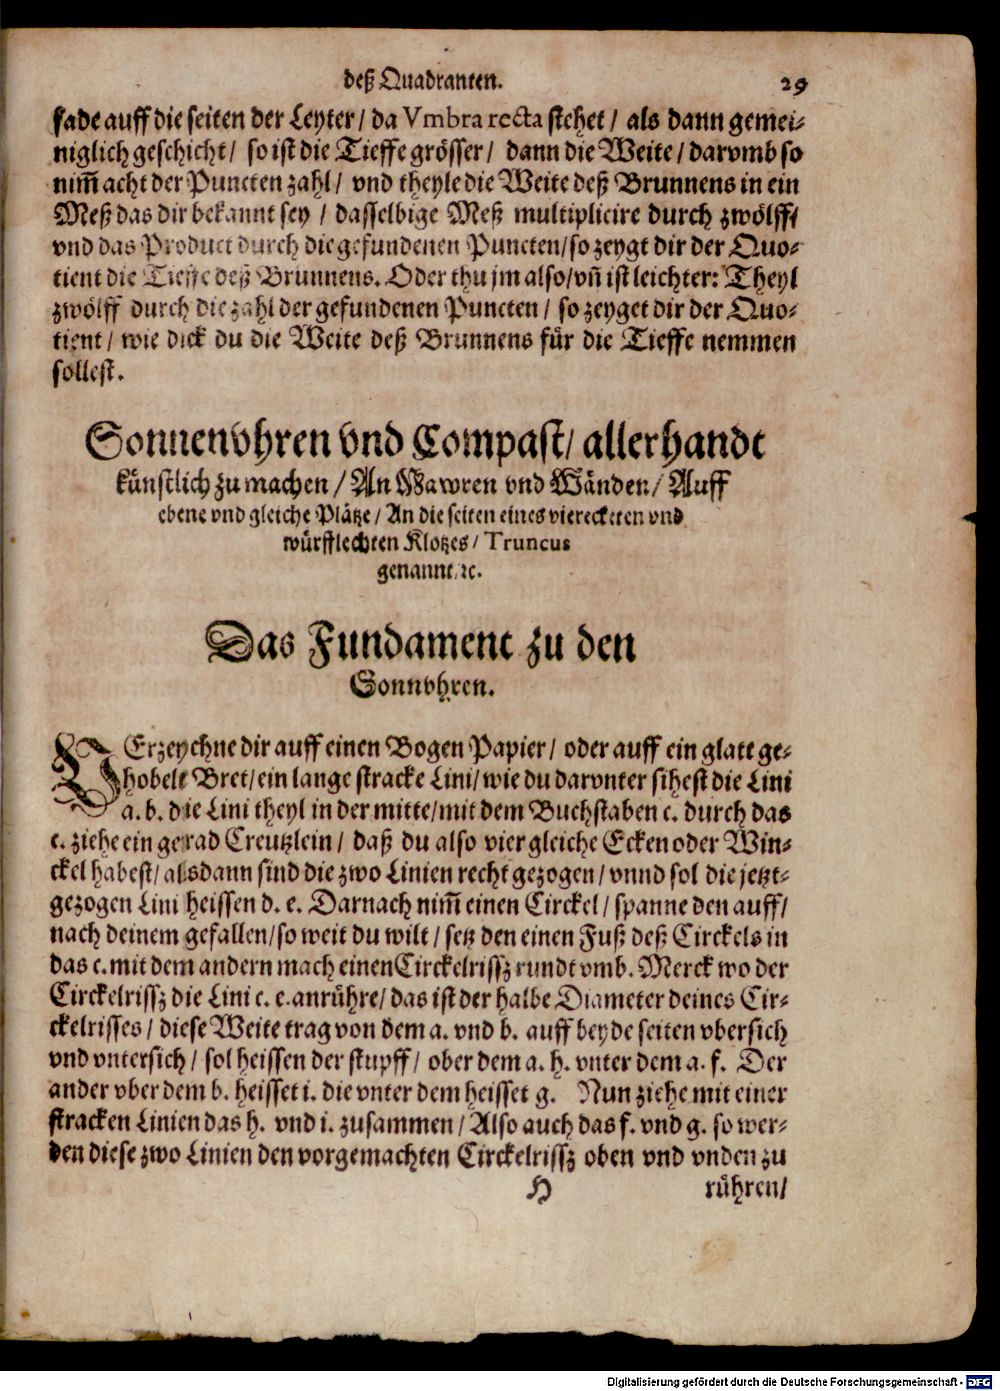 deß Quadranten. 29
fade auff die seiten der Leyter / da Vmbra recta stehet / als dann gemei-
niglich geschicht / so ist die Tieffe grösser / dann die Weite / darvmb so
nim̃ acht der Puncten zahl / vnd theyle die Weite deß Brunnens in ein
Meß das dir bekannt sey / dasselbige Meß multiplicire durch zwölff /
vnd das Product durch die gefundenen Puncten / so zeygt dir der Quo-
tient die Tieffe deß Brunnens. Oder thu jm also / vñ ist leichter: Theyl
zwölff durch die zahl der gefundenen Puncten / so zeyget dir der Quo-
tient / wie dick du die Weite deß Brunnens für die Tieffe nemmen
sollest.
Sonnenvhren vnd Compast / allerhandt
künstlich zu machen / An Mawren vnd Wänden / Auff
ebene vnd gleiche Plätze / An die seiten eines viereckten vnd
würfflechten Klotzes / Truncus
genannt / ꝛc.
Das Fundament zu den
Sonnvhren.
VErzeychne dir auff einen Bogen Papier / oder auff ein glatt ge-
hobelt Bret / ein lange stracke Lini / wie du darvnter sihest die Lini
a. b. die Lini theyl in der mitte / mit dem Buchstaben c. durch das
c. ziehe ein gerad Creutzlein / daß du also vier gleiche Ecken oder Win-
ckel habest / alsdann sind die zwo Linien recht gezogen / vnnd sol die jetzt-
gezogen Lini heissen d. e. Darnach nim̃ einen Circkel / spanne den auff /
nach deinem gefallen / so weit du wilt / setz den einen Fuß deß Circkels in
das c. mit dem andern mach einen Circkelrissz rundt vmb. Merck wo der
Circkelrissz die Lini c. e. anrühre / das ist der halbe Diameter deines Cir-
ckelrisses / diese Weite trag von dem a. vnd b. auff beyde seiten vbersich
vnd vntersich / sol heissen der stupff / ober dem a. h. vnter dem a. f. Der
ander vber dem b. heisset i. die vnter dem heisset g. Nun ziehe mit einer
stracken Linien das h. vnd i. zusammen / Also auch das f. vnd g. so wer-
den diese zwo Linien den vorgemachten Circkelrissz oben vnd vnden zu
H rühren /
Digitalisierung gefördert durch die Deutsche Forschungsgemeinschaft - DFG